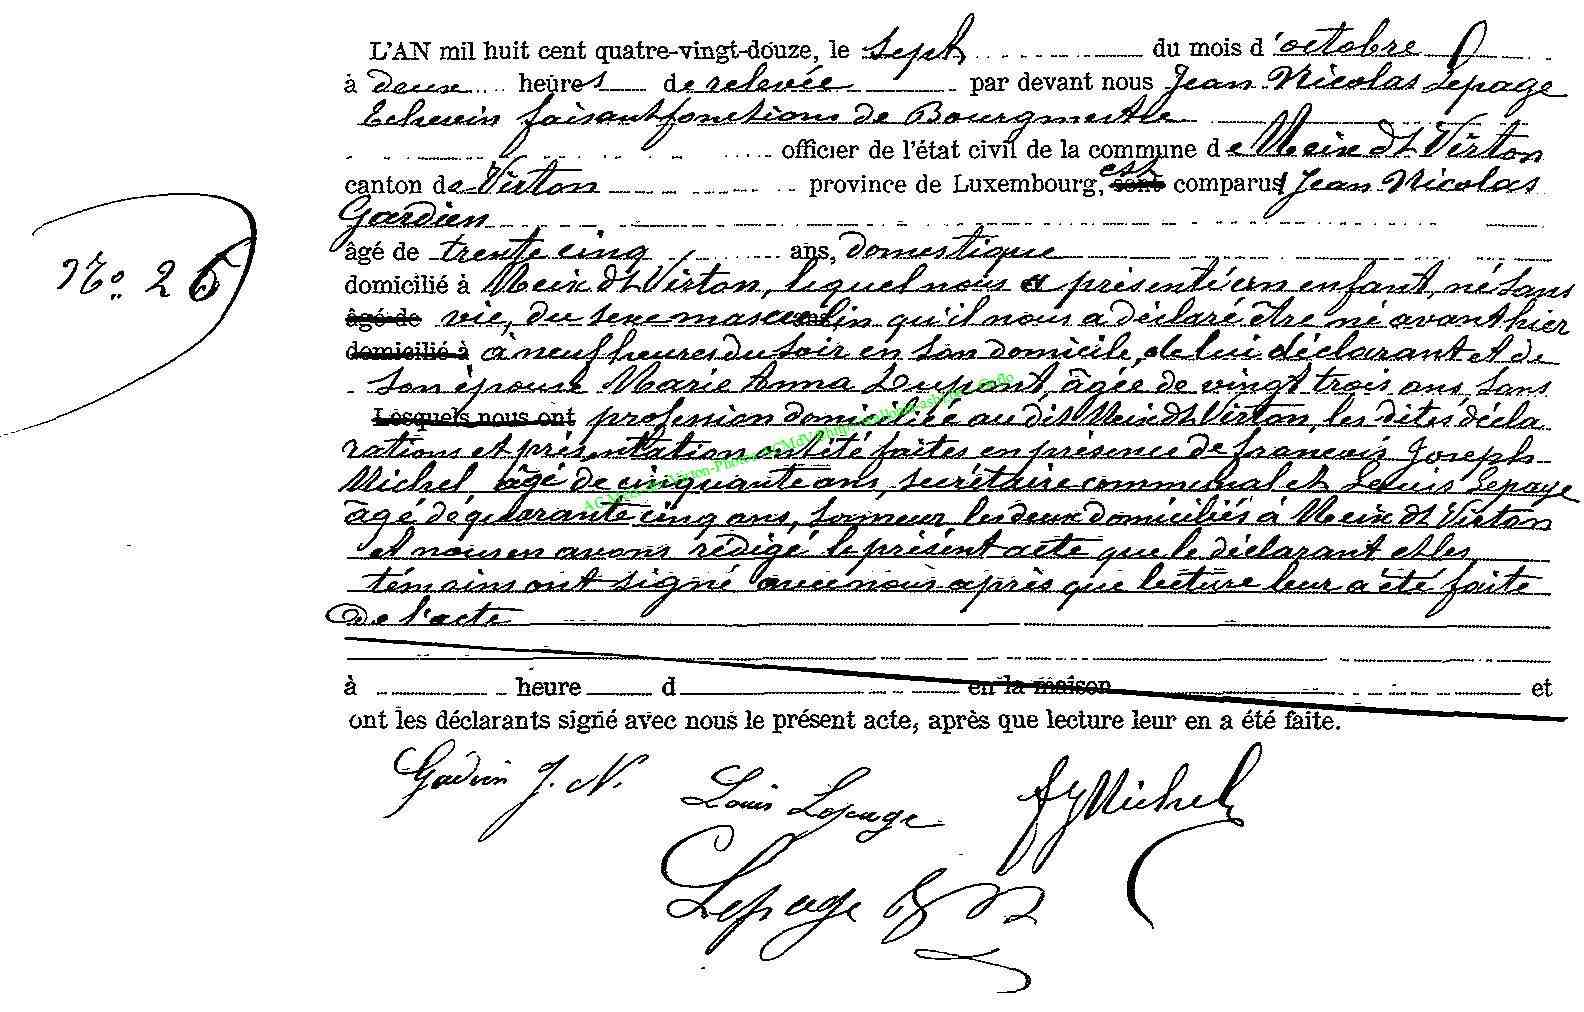 L'AN mil huit cent quatre-vingt-douze, le sept du mois d'octobre
à deux heures de relevée par devant nous Jean Nicolas Lepage
Echevin faisant fonctions de Bourgmestre
officier de l'état civil de la commune de Meix dt Virton
canton de Virton province de Luxembourg, est sont comparus Jean Nicolas
Gardien
âgé de trente cinq ans, domestique
domicilié à Meix dt Virton, lequel nous a présenté un enfant, né sans
âgé de vie, du sexe masculin qu'il nous a déclaré être né avant hier
domicilié à à neuf heures du soir en son domicile, de lui déclarant et de
son épouse Marie Anna Dupont, âgée de vingt trois ans, sans
Lesquels nous ont profession domiciliée au dit Meix dt Virton, les dites décla
rations et présentation ont été faites en présence de françois Joseph
Michel âgé de cinquante ans, secrétaire communal et Louis Lepage
âgé de quarante cinq ans, sonneur les deux domiciliés à Meix dt Virton
et nous en avons rédigé le présent acte que le déclarant et les
témoins ont signé avec nous après que lecture leur a été faite
de l'acte
N° 26
à heure d en la maison et
ont les déclarants signé avec nous le présent acte, après que lecture leur en a été faite.
Gardien J. N. Louis Lepage fJ Michel
Lepage